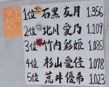 1位 石黒 友月 1.366
2位 北川 愛乃 1.109
3位 竹内 彩姫 1.085
4位 杉山 愛佳 1.056
5位 荒井 優希 1.023